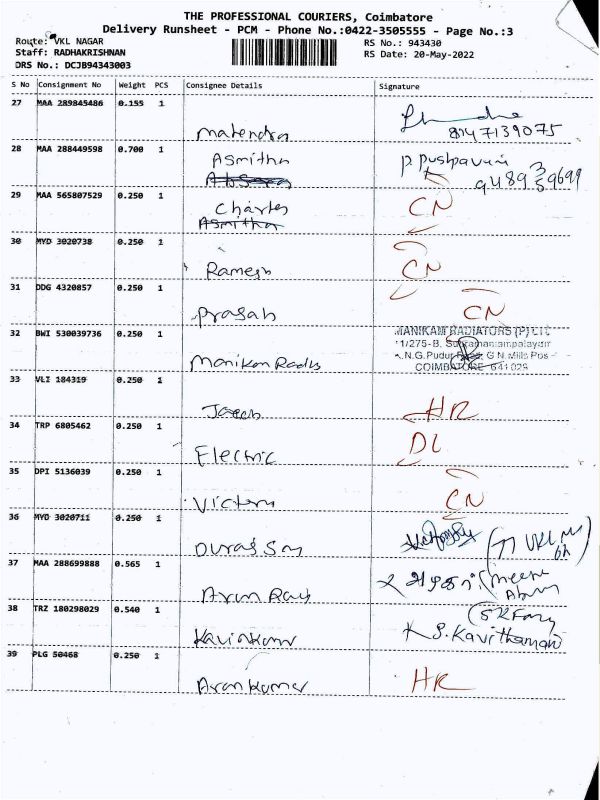 THE PROFESSIONAL COURIERS, Coimbatore
Delivery Runsheet - PCM - Phone No.:0422-3505555 - Page No.:3
Route: VKL NAGAR
RS No.: 943430
Staff: RADHAKRISHNAN
RS Date: 20-May-2022
DRS No.: DCJB94343003
S No Consignment No Weight PCS Consignee Details Signature
27 MAA 289845486 0.155 1
Mahendra 8747139075
28 MAA 288449598 0.700 1
Asmitha P. Pushpavani
29 MAA 565807529 0.250 1
Charles CN
Asmitha
30 MYD 3020738 0.250 1
Ramesh CN
31 DDG 4320857 0.250 1
Prasah CN
32 BWI 530039736 0.250 1
MANIKAM RADIATORS (P) LTD
11/275-B, Subramaniampalayam
N.G.Pudur Road, G.N.Mills Post
COIMBATORE 641 029
Manikam Radis
33 VLI 184319 0.250 1
HR
34 TRP 6805462 0.250 1
Electric DL
35 DPI 5136039 0.250 1
Victory CN
36 MYD 3020711 0.250 1
Durai Say VKL
37 MAA 288699888 0.565 1
Arun Raj
38 TRZ 180298029 0.540 1
Kavinkumr S.Kavithamani
39 PLG 50468 0.250 1
Arankumar HR